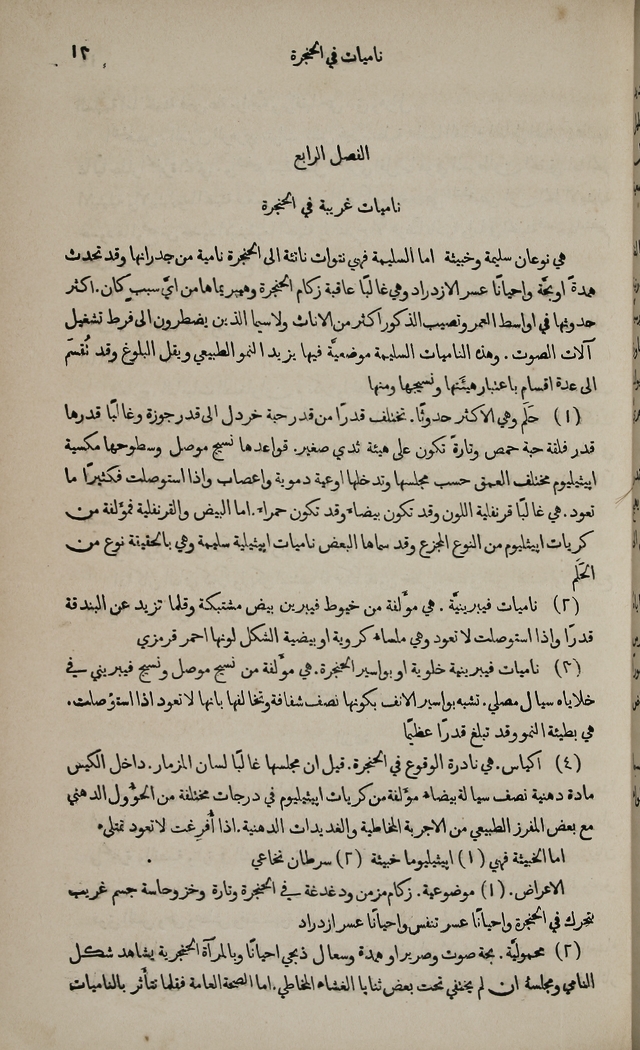 ناميات في الحنجرة
١٣
الفصل الرابع
ناميات غريبة في الحنجرة
هي نوعان سليمة وخبيثة اما السليمة فهي نتوات ناتئة الى الحنجرة نامية من جدرانها وقد تحدث
همدةً او بحَّة واحيانًا عسر الازدراد وهي غالبًا عاقبة زكام الحنجرة ومهيجها من ايّ سببٍ كان. اكثر
حدوثها في اواسط العمر وتصيب الذكور اكثر من الاناث ولاسيما الذين يضطرون الى فرط تشغيل
آلات الصوت. وهذه الناميات السليمة موضعيَّة فيها يزيد النمو الطبيعي ويقل البلوغ وقد تُقسَم
الى عدة اقسام باعتبار هيئتها ونسيجها ومنها
(١) حَلَم وهي الاكثر حدوثًا. تختلف قدرًا من قدر حبة خردل الى قدر جوزة وغالبًا قدرها
قدر فلقة حبة حمص وتارةً تكون على هيئة ثدي صغير. قواعدها نسيج موصل وسطوحها مكسية
اپيثيليوم مختلف العمق حسب مجلسها وتدخلها اوعية دموية واعصاب واذا استوصلت فكثيرًا ما
تعود. هي غالبًا قرنفلية اللون وقد تكون بيضاء وقد تكون حمراء. اما البيض والقرنفلية فمؤلفة من
كريات اپيثليوم من النوع المجزع وقد سماها البعض ناميات اپيثيلية سليمة وهي بالحقيقة نوع من
الحَلَم
(٢) ناميات فيبرينيَّة. هي مؤلفة من خيوط فيبرين بيض مشتبكة وقلما تزيد عن البندقة
قدرًا واذا استوصلت لا تعود وهي ملساء كروية او بيضية الشكل لونها احمر قرمزي
(٣) ناميات فيبرينية خلوية او بواسير الحنجرة. هي مؤلفة من نسيج موصل ونسيج فيبريني في
خلاياه سيال مصلي. تشبه بواسير الانف بكونها نصف شفافة وتخالفها بانها لا تعود اذا استؤصلت.
هي بطيئة النمو وقد تبلغ قدرًا عظيمًا
(٤) اكياس. هي نادرة الوقوع في الحنجرة. قيل ان مجلسها غالبًا لسان المزمار. داخل الكيس
مادة دهنية نصف سيالة بيضاء مؤلفة من كريات اپيثيليوم في درجات مختلفة من الحؤول الدهني
مع بعض المفرز الطبيعي من الاجربة المخاطية والغديدات الدهنية. اذا أُفرغت لا تعود تمتلىء
اما الخبيثة فهي (١) اپيثيليوما خبيثة (٢) سرطان نخاعي
الاعراض. (١) موضوعية. زكام مزمن ودغدغة في الحنجرة وتارة وخز وحاسة جسم غريب
يتحرك في الحنجرة واحيانًا عسر تنفس واحيانًا عسر ازدراد
(٢) محموليَّة. بحة صوت وصرير او همدة وسعال ذبحي احيانًا وبالمرآة الحنجرية يشاهد شكل
النامي ومجلسهُ ان لم يختفي تحت بعض ثنايا الغشاء المخاطي. اما الصحة العامة فقلما تتأثر بالناميات